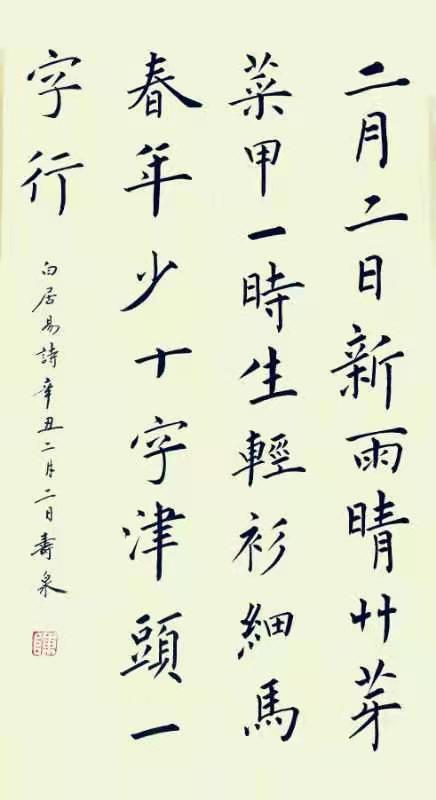 二月二日新雨晴艸芽
菜甲一時生輕衫細馬
春年少十字津頭一
字行
白居易詩辛丑二月二日壽泉